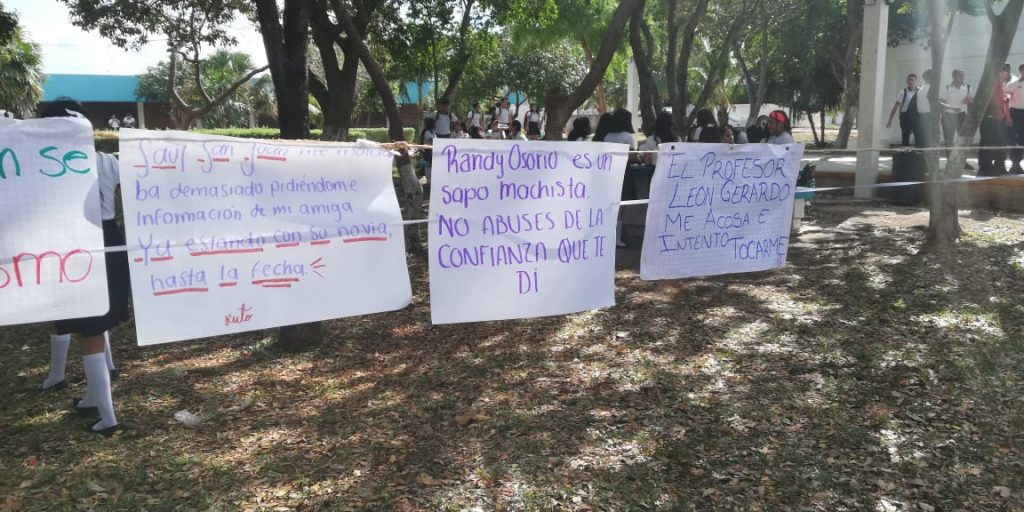 n se
omo
Saul San Juan me
ba demasiado pidiéndome
Información de mi amiga
Ya estando con su novia,
hasta la fecha.
puto
Randy Osorio es un
sapo machista.
NO ABUSES DE LA
CONFIANZA QUE TE
DÍ
EL PROFESOR
LEON GERARDO
ME ACOSA E
INTENTO TOCARME